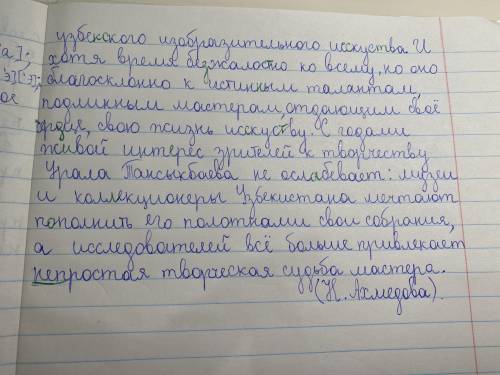 узбекского изобразительного исскуства. И
[а];
хотя время безжалостно ко всему, но оно
благосклонно к истинным талантам,
подлинным мастерам, отдающим своё
сердця, свою жизнь исскуству. С годами
живой интерес зрителей к творчеству
Урала Тансыкбаева не ослабевает: музеи
и коллекционеры Узбекистана мечтают
пополнить его полотнами свои собрания,
а исследователей всё больше привлекает
непростая творческая судьба мастера.
(Н. Ахмедова).